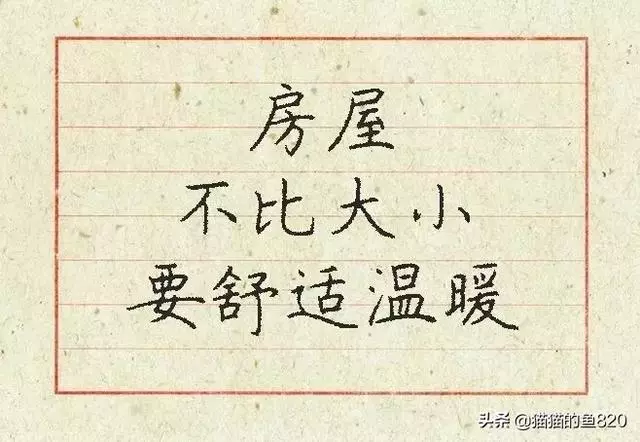 房屋
不比大小
要舒适温暖
头条@猫猫的鱼820